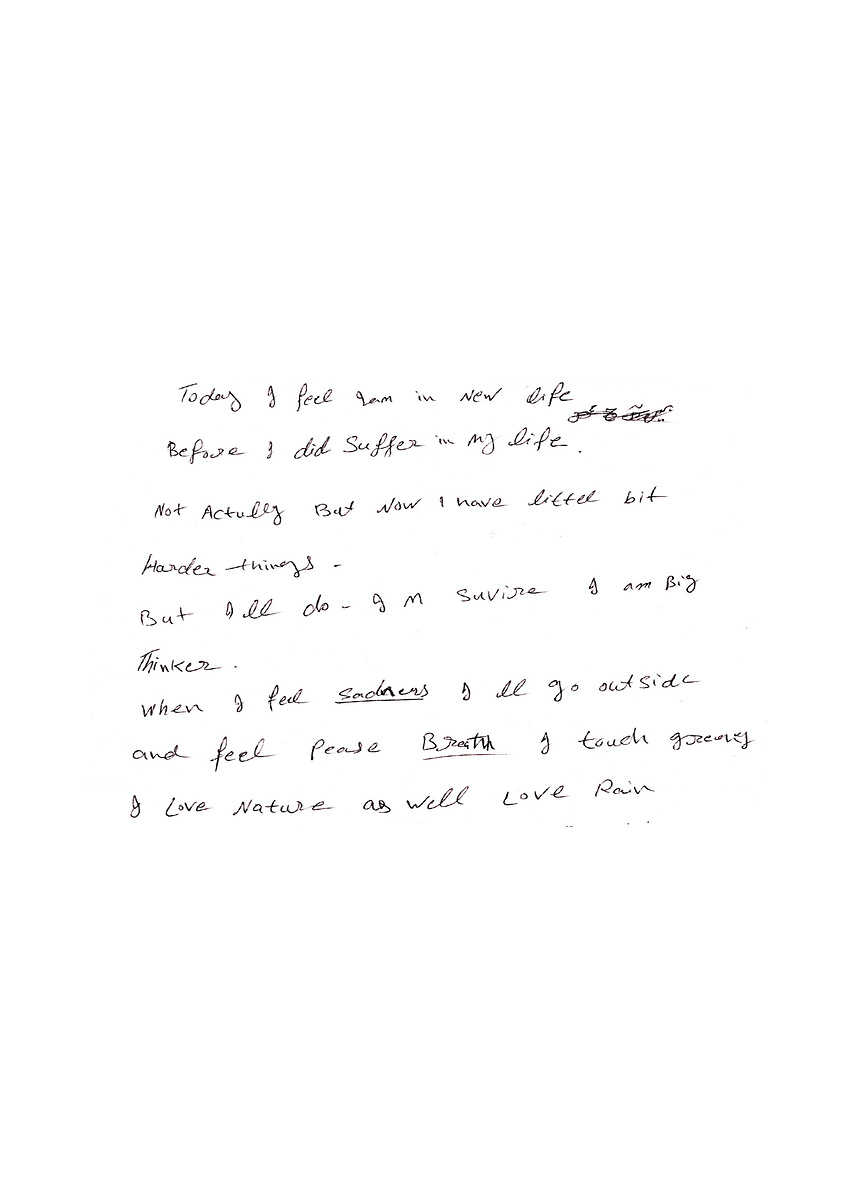 Today I feel Iam in New life
Before I did Suffer in My life.
Not Actully But Now I have littel bit
Harder things -
But I ll do - I M Suvire I am Big
Thinker.
When I feel Sadness I ll go outside
and feel Pease Breath I touch greeny
I Love Nature as well Love Rain